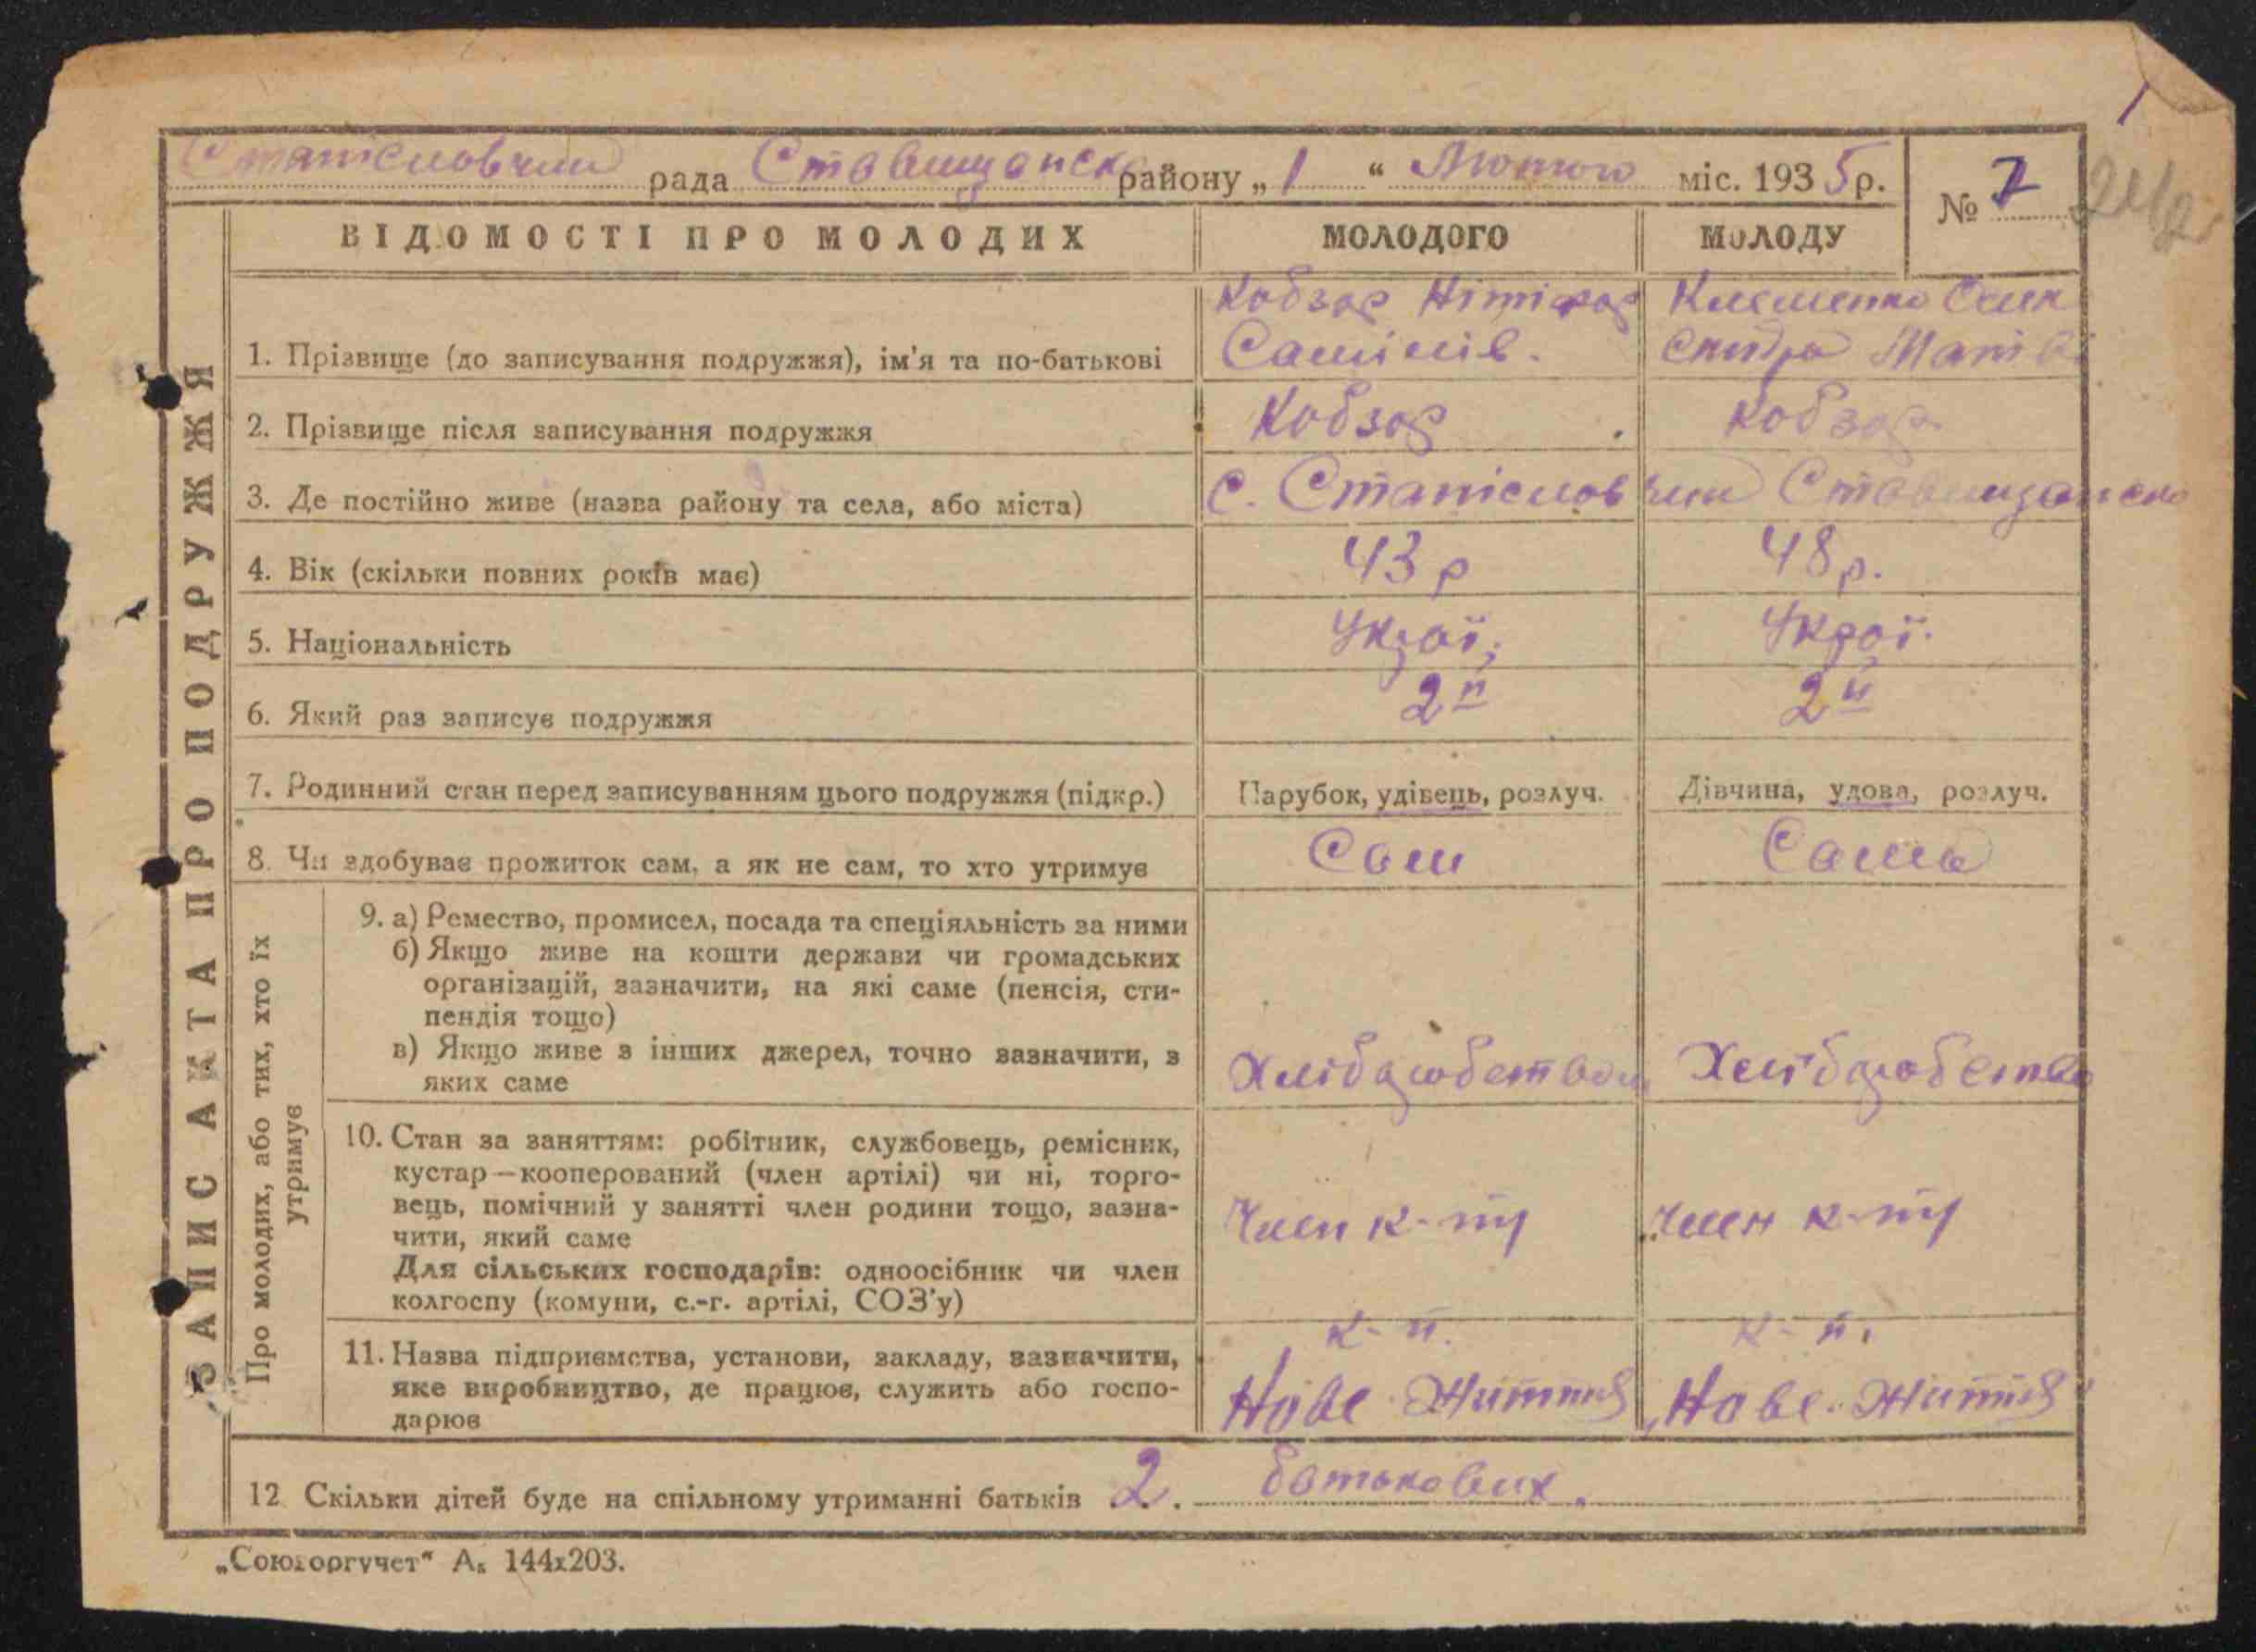 Станіславчик рада Ставищанськ району „ 1 “ Лютого міс. 1935 р.
№ 7
ВІДОМОСТІ ПРО МОЛОДИХ МОЛОДОГО МОЛОДУ
ЗАПИС АКТА ПРО ПОДРУЖЖЯ
1. Прізвище (до записування подружжя), ім'я та по-батькові
Кобзар
Клеменко
2. Прізвище після записування подружжя Кобзар Кобзар
3. Де постійно живе (назва району та села, або міста) с. Станіславчик Ставищанськ
4. Вік (скільки повних років має) 43 р 48 р.
5. Національність Украї. Украї.
6. Який раз записує подружжя 2й 2й
7. Родинний стан перед записуванням цього подружжя (підкр.) Парубок, удівець, розлуч. Дівчина, удова, розлуч.
8. Чи здобуває прожиток сам, а як не сам, то хто утримує Сам Сама
Про молодих, або тих, хто їх
утримує
9. а) Ремество, промисел, посада та спеціяльність за ними
б) Якщо живе на кошти держави чи громадських
організацій, зазначити, на які саме (пенсія, сти-
пендія тощо)
в) Якщо живе з інших джерел, точно зазначити, з
яких саме
Хліборобством Хліборобство
10. Стан за заняттям: робітник, службовець, ремісник,
кустар—кооперований (член артілі) чи ні, торго-
вець, помічний у занятті член родини тощо, зазна-
чити, який саме
Для сільських господарів: одноосібник чи член
колгоспу (комуни, с.-г. артілі, СОЗ'у)
Член к-пу Член к-пу
11. Назва підприємства, установи, закладу, зазначити,
яке виробництво, де працює, служить або госпо-
дарює
к-п. к-п.
Нове Життя Нове Життя
12 Скільки дітей буде на спільному утриманні батьків 2. батькових.
„Союзоргучет“ А₅ 144х203.